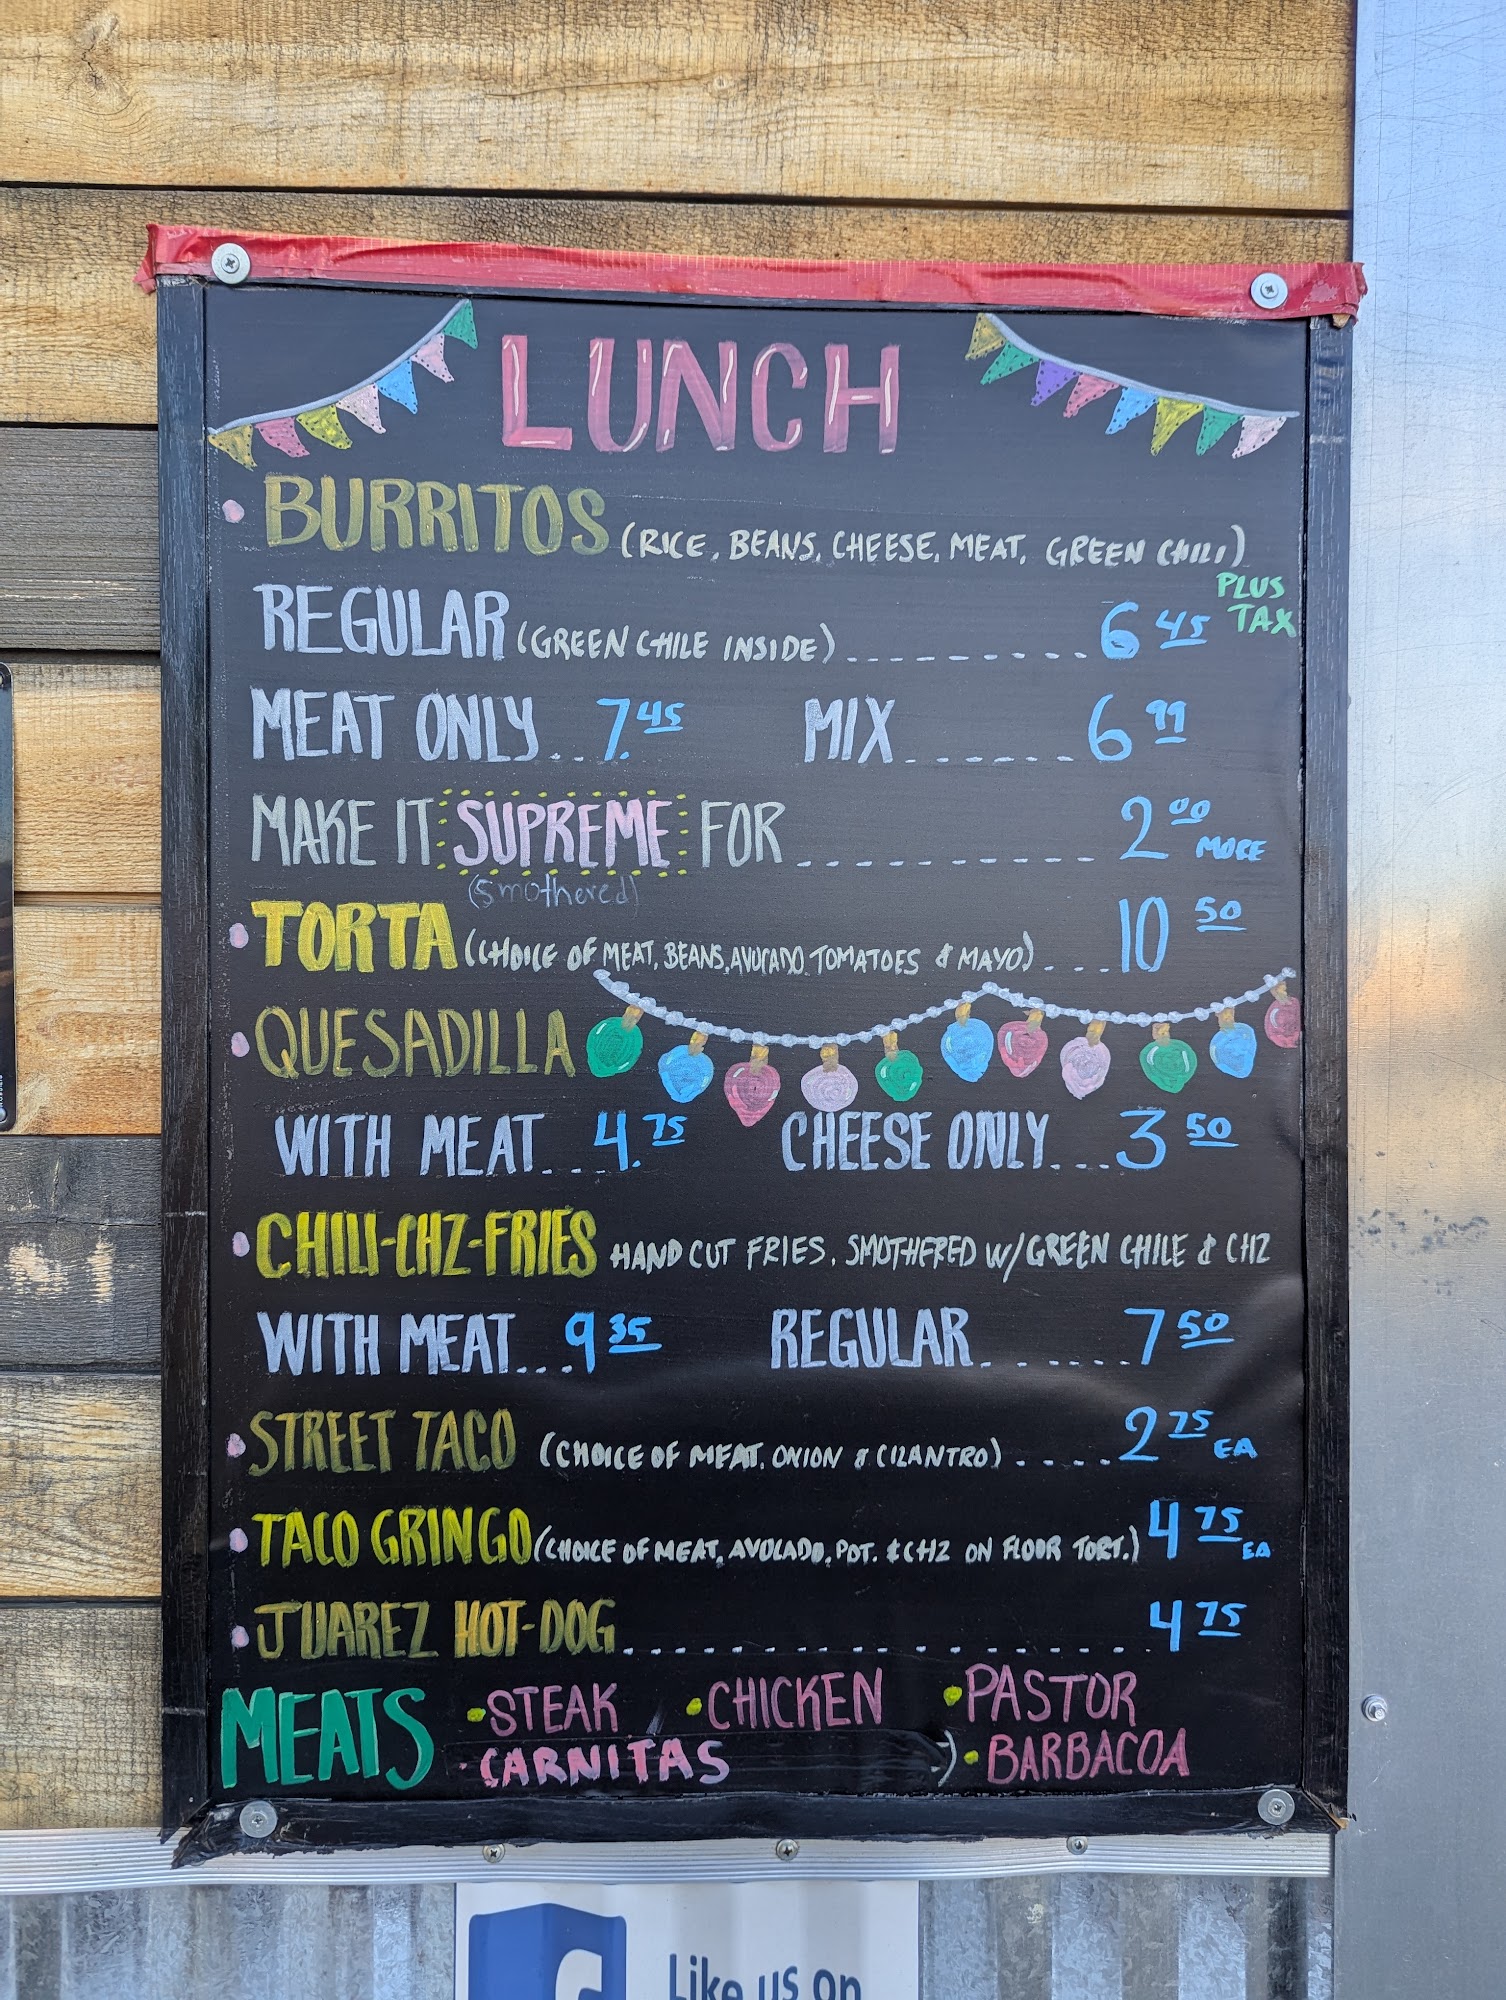 LUNCH
BURRITOS (RICE, BEANS, CHEESE, MEAT, GREEN CHILI)
PLUS TAX
REGULAR (GREEN CHILE INSIDE) ......... 6 45
MEAT ONLY .. 7.45 MIX ...... 6 99
MAKE IT SUPREME FOR ............ 2 00 MORE
(Smothered)
TORTA (CHOICE OF MEAT, BEANS, AVOCADO, TOMATOES & MAYO) ... 10 50
QUESADILLA
WITH MEAT ... 4.75 CHEESE ONLY ... 3 50
CHILI-CHZ-FRIES HAND CUT FRIES, SMOTHERED W/GREEN CHILE & CHZ
WITH MEAT ... 9 35 REGULAR ...... 7 50
STREET TACO (CHOICE OF MEAT, ONION & CILANTRO) .... 2 75 EA
TACO GRINGO (CHOICE OF MEAT, AVOCADO, POT. & CHZ ON FLOOR TORT.) 4 75 EA
JUAREZ HOT-DOG ................ 4 75
MEATS • STEAK • CHICKEN • PASTOR
• CARNITAS ) • BARBACOA
Like us on